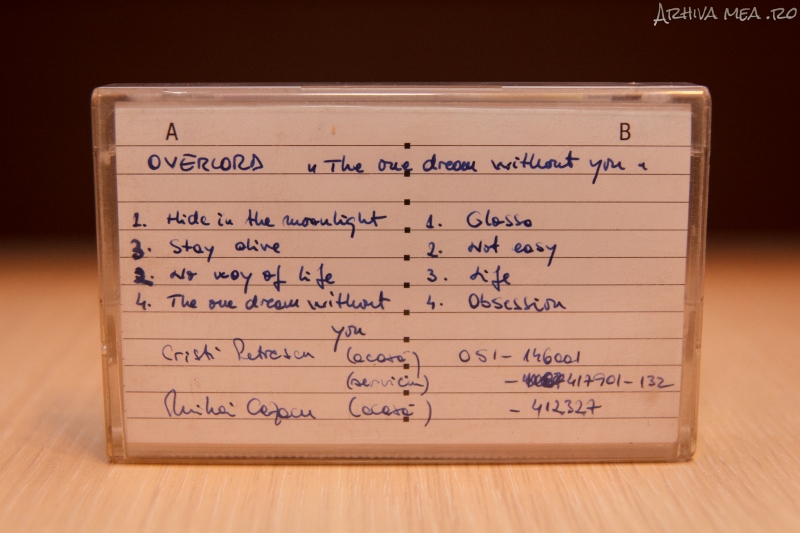 ARHIVA MEA.RO
A B
OVERLORD „The one dream without you"
1. Hide in the moonlight 1. Glasso
3. Stay alive 2. Not easy
2. No way of life 3. Life
4. The one dream without 4. Obsession
you
Cristi Petrescu (acasă) 051-146001
(serviciu) - 417901-132
Mihai Cazacu (acasă) - 412327